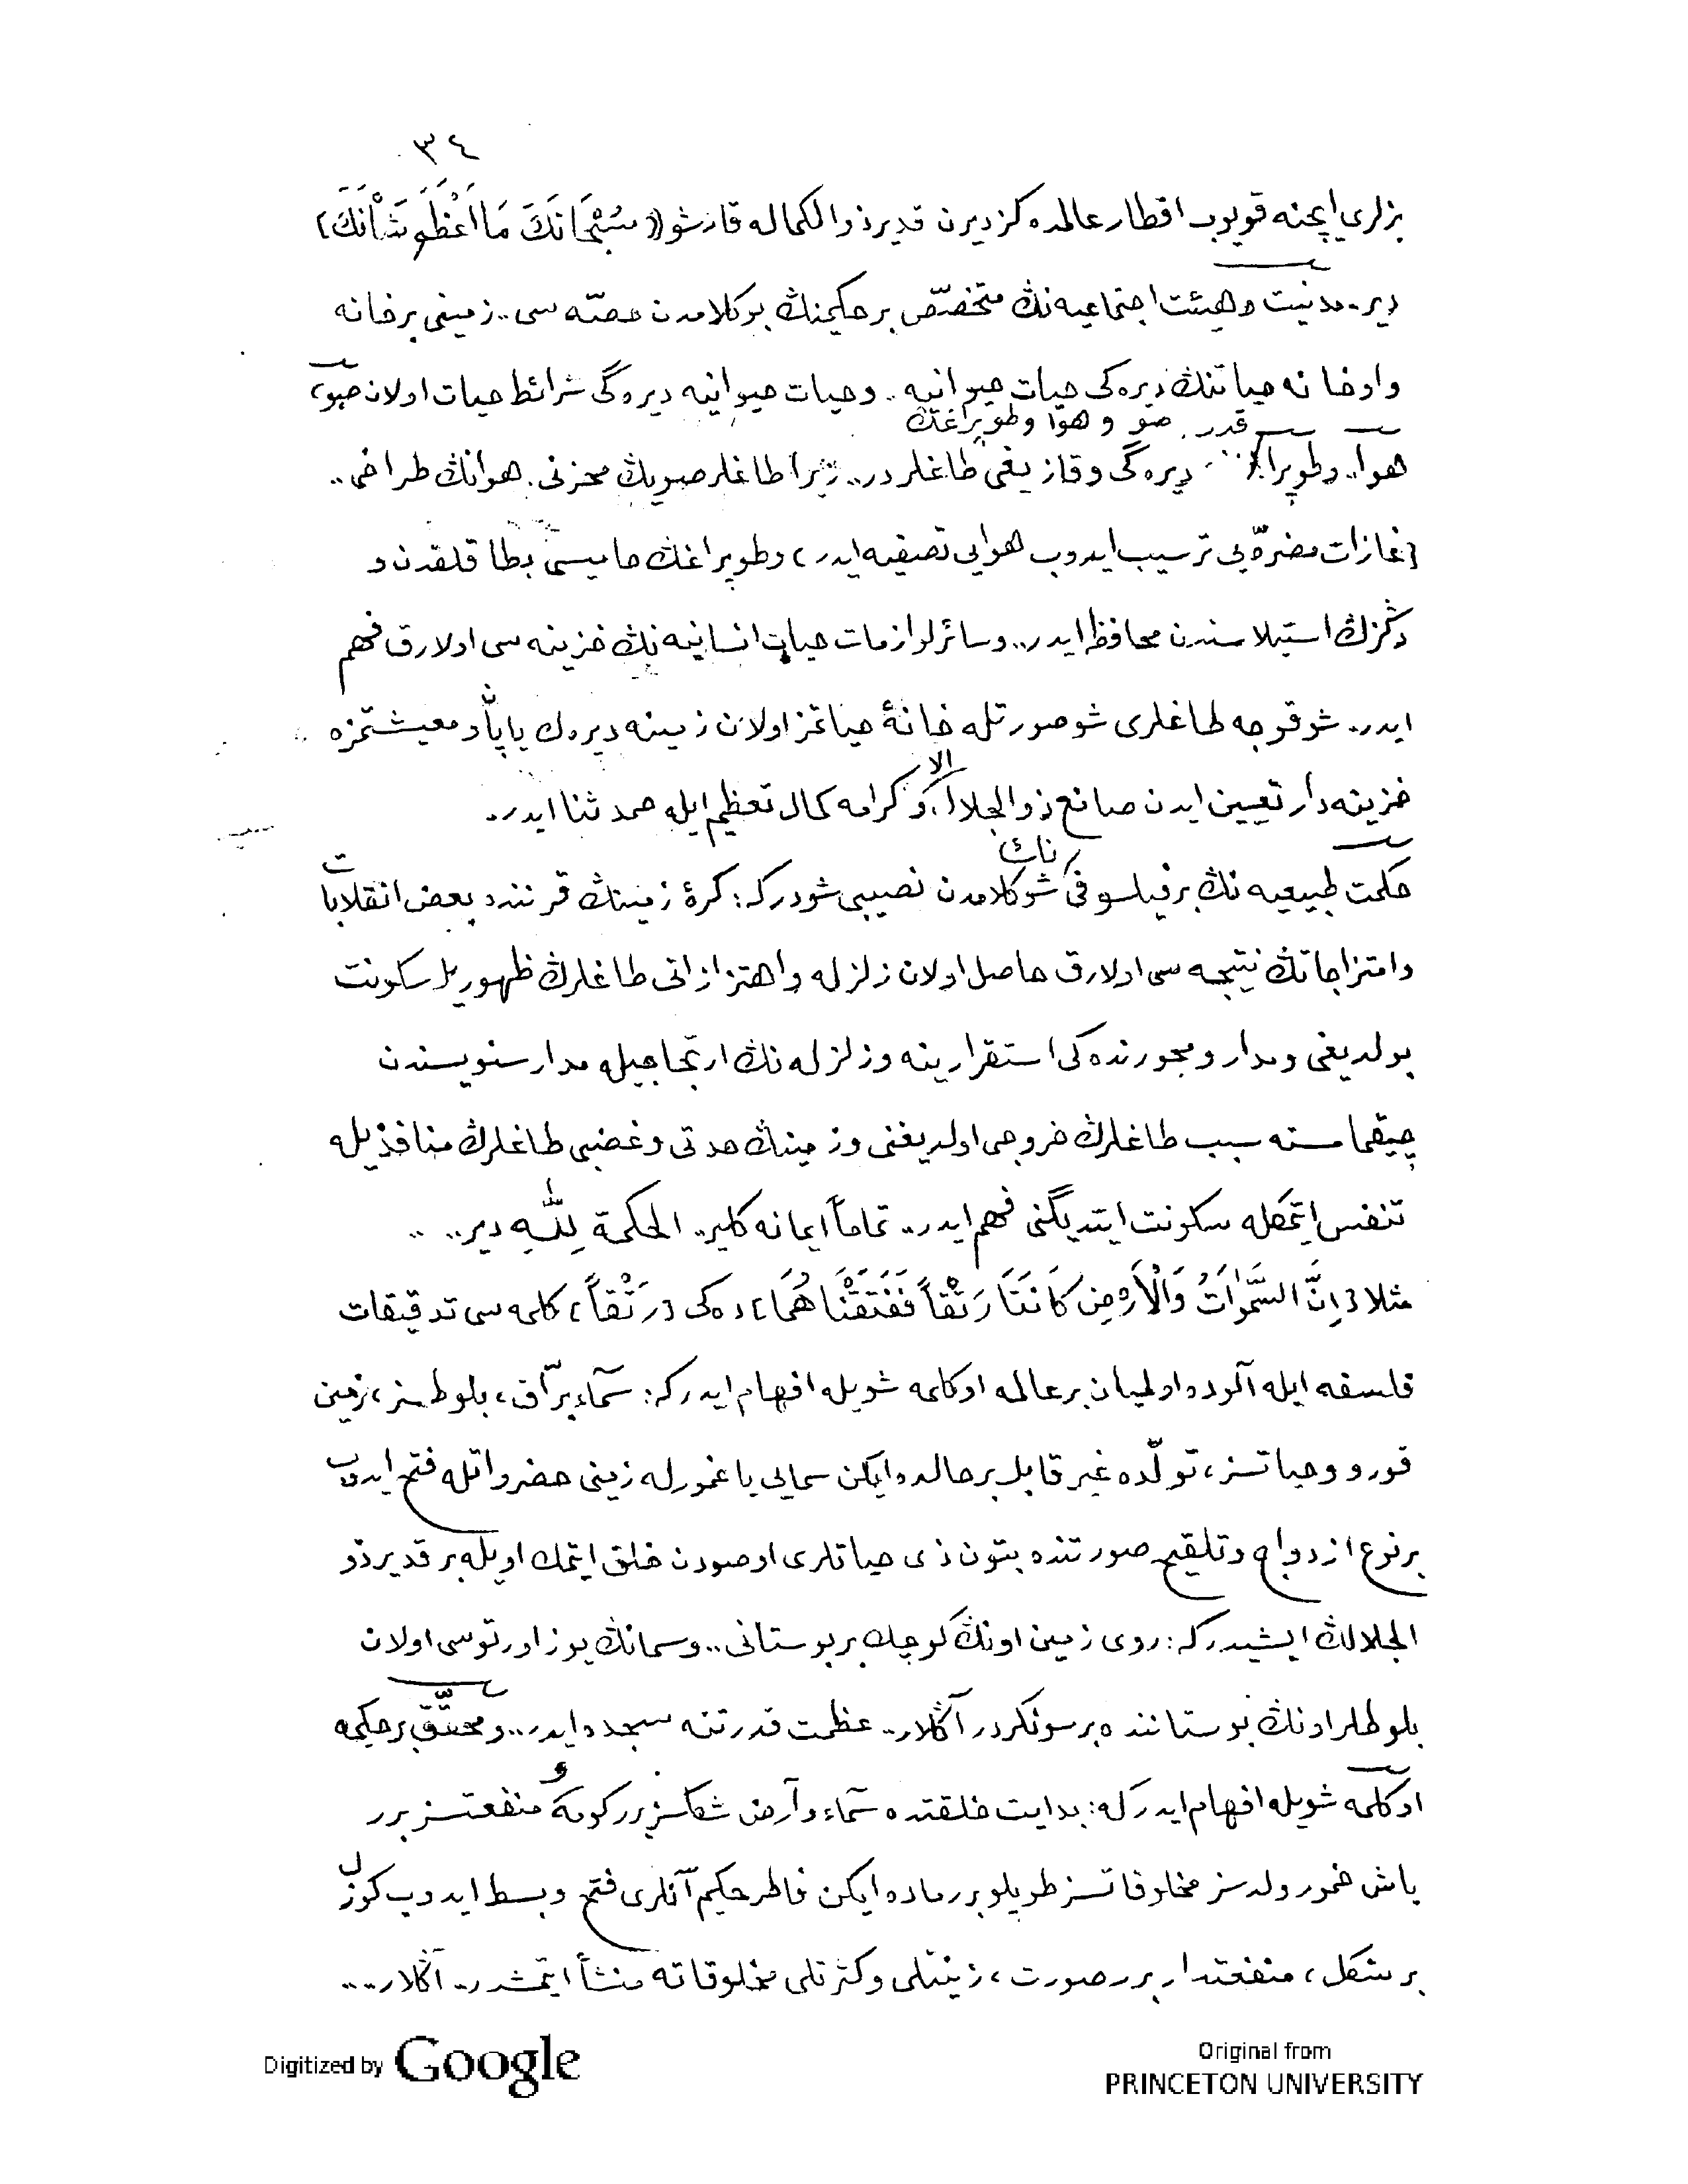 ٣٤
بزلرى ايچنه قويوب اقطار عالمده كزديرن قدير ذو الكماله قارشو (( سُبْحَانَكَ مَا اَعْظَمَ شَأْنَكَ )
دير.. مدنيت و هيئت اجتماعيه نڭ متخصّص بر حكيمنڭ بو كلامدن حصّه سى.. زمينى بر خانه
و او خانه حياتنڭ ديره كى حيات حيوانيه.. و حيات حيوانيه ديره گى شرائط حيات اولان صو،
قدر. صو و هوا و طوپراغڭ
هوا.. و طوپراق.. ديره گى و قازيغى طاغلردر.. زيرا طاغلر صويڭ مخزنى. هوانڭ طراغى..
(غازات مضرّه يى ترسيب ايدوب هوايى تصفيه ايدر) و طوپراغڭ حاميسى بطاقلقدن و
دڭزڭ استيلاسندن محافظه ايدر.. و سائر لوازمات حيات انسانيه نڭ خزينه سى اولارق فهم
ايدر.. شو قوجه طاغلرى شو صورتله خانهٔ حياتمز اولان زمينه ديرك ياپان و معيشتمزه
خزينه دار تعيين ايدن صانع ذو الجلال و الاكرامه كمال تعظيم ايله حمد ثنا ايدر..
حكمت طبيعيه نڭ بر فيلسوفى ناڭ شو كلامدن نصيبى شودركه: كرهٔ زمينڭ قرننده بعض انقلابات
و امتزاجاتڭ نتيجه سى اولارق حاصل اولان زلزله و اهتزازاتى طاغلرڭ ظهوريله سكونت
بولديغى و مدار و محورنده كى استقرارينه و زلزله نڭ ارتجاجيله مدار سنويسندن
چيقمامسنه سبب طاغلرڭ خروجى اولديغنى و زمينڭ حدتى و غضبى طاغلرڭ منافذيله
تنفس ايتمكله سكونت ايتديگنى فهم ايدر.. تماماً ايمانه كلير.. الحكمة لِلّٰهِ دير.. ..
مثلا (اِنَّ السَّمٰوَاتُ وَالْاَرْضِ كَانَتَا رَتْقاً فَفَتَقْنَاهُمَا) ده كى (رَتْقاً) كلمه سى تدقيقات
فلسفه ايله آلوده اولميان بر عالمه او كلمه شويله افهام ايدركه: سمآء برّاق، بلوطسز، زمين
قورو و حياتسز، تولّده غير قابل بر حالده ايكن سمايى ياغمورله زمينى حضرواتله فتح ايدوب
بر نوع ازدواج و تلقيح صورتنده بتون ذى حياتلرى او صودن خلق ايتمك اويله بر قدير ذو
الجلالڭ ايشيدركه: روى زمين اونڭ كوچك بر بوستانى.. و سمانڭ يوز اورتوسى اولان
بلوطلر اونڭ بوستاننده بر سونكردر آڭلار.. عظمت قدرتنه سجده ايدر.. و محقّق بر حكيمه
او كلمه شويله افهام ايدركه: بدايت خلقتده سمآء و آرض شكلسز برر كومه و منفعتسز برر
ياش خمور ولدسز مخلوقاتسز طوپلو برر ماده ايكن فاطر حكيم آنلرى فتح و بسط ايدوب كوزل
بر شكل، منفعتدار برر صورت، زينتلى و كثرتلى مخلوقاته منشأ ايتمشدر.. آڭلار....
Digitized by Google
Original from
PRINCETON UNIVERSITY